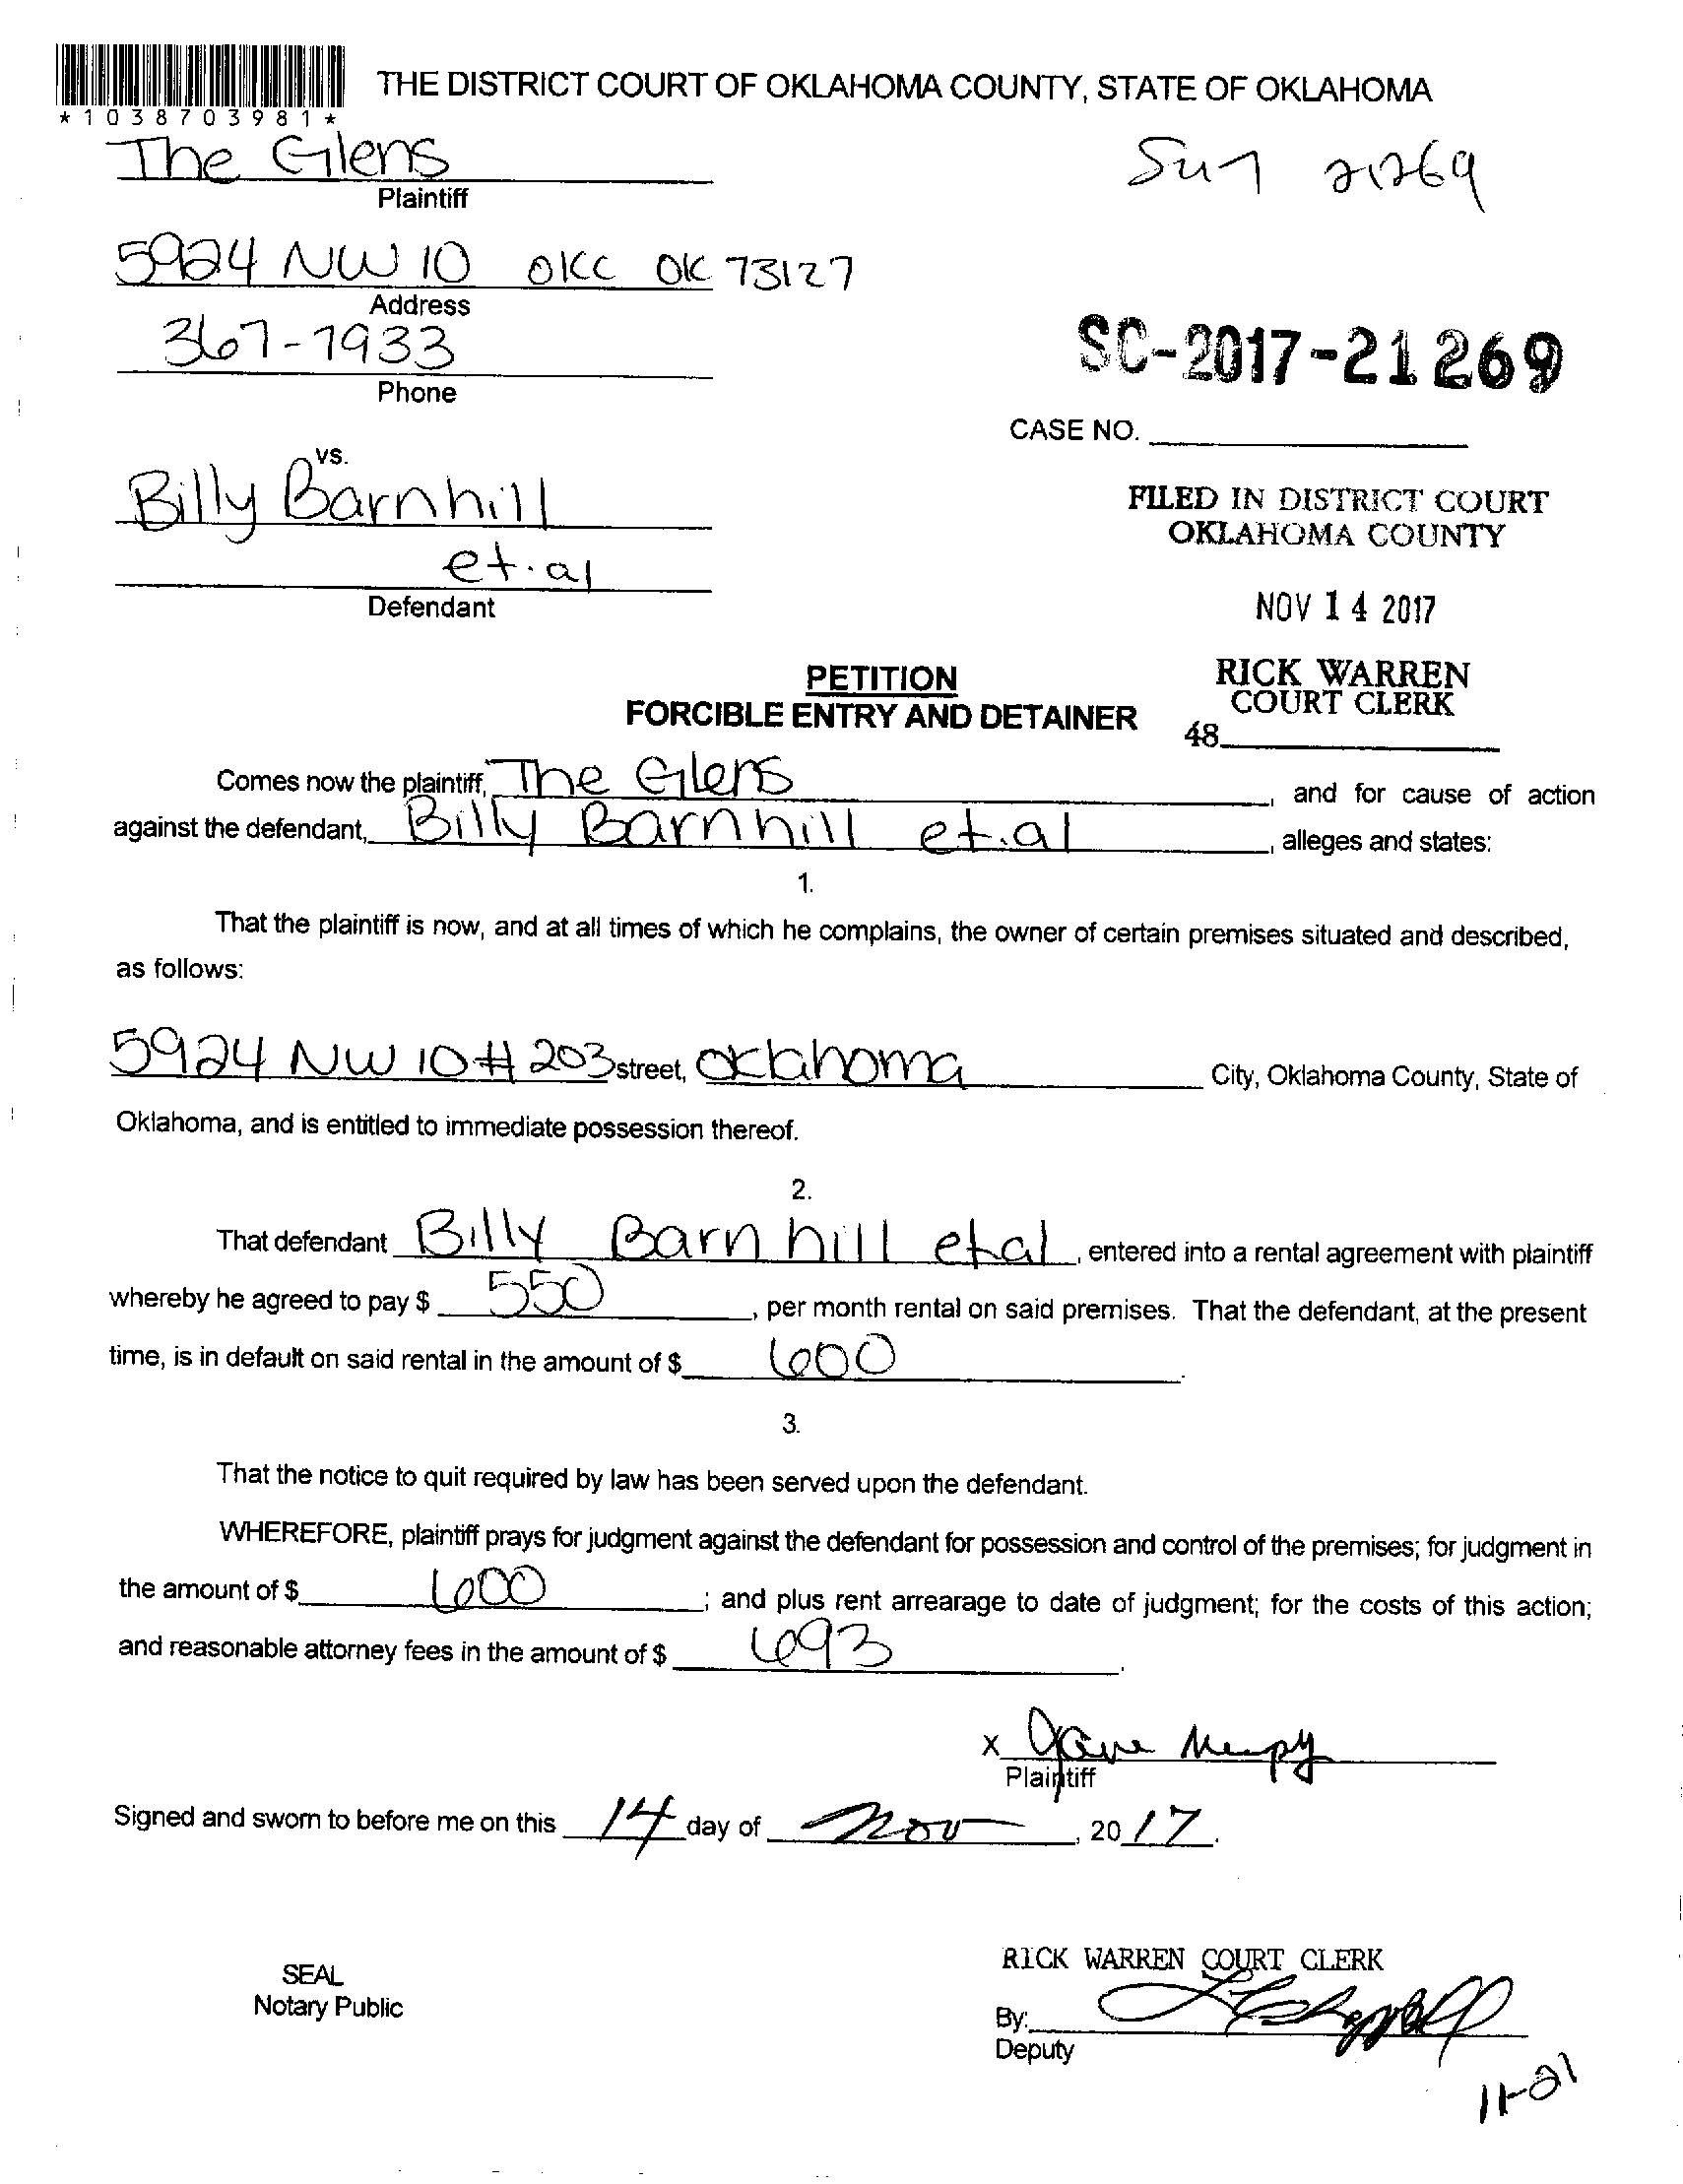 THE DISTRICT COURT OF OKLAHOMA COUNTY, STATE OF OKLAHOMA
*1038703981*
The Glens
Plaintiff
21269
5924 NW 10 OKC OK 73127
Address
367-7933
Phone
SC-2017-21269
CASE NO.
vs.
Billy Barnhill
et.al
Defendant
FILED IN DISTRICT COURT
OKLAHOMA COUNTY
NOV 14 2017
RICK WARREN
COURT CLERK
48
PETITION
FORCIBLE ENTRY AND DETAINER
Comes now the plaintiff, The Glens, and for cause of action
against the defendant, Billy Barnhill et.al, alleges and states:
1.
That the plaintiff is now, and at all times of which he complains, the owner of certain premises situated and described,
as follows:
5924 NW 10 # 203 street, Oklahoma City, Oklahoma County, State of
Oklahoma, and is entitled to immediate possession thereof.
2.
That defendant Billy Barnhill etal, entered into a rental agreement with plaintiff
whereby he agreed to pay $ 550, per month rental on said premises. That the defendant, at the present
time, is in default on said rental in the amount of $ 600.
3.
That the notice to quit required by law has been served upon the defendant.
WHEREFORE, plaintiff prays for judgment against the defendant for possession and control of the premises; for judgment in
the amount of $ 600; and plus rent arrearage to date of judgment; for the costs of this action;
and reasonable attorney fees in the amount of $ 693.
x
Plaintiff
Signed and sworn to before me on this 14 day of Nov, 2017.
SEAL
Notary Public
RICK WARREN COURT CLERK
By:
Deputy
11-21